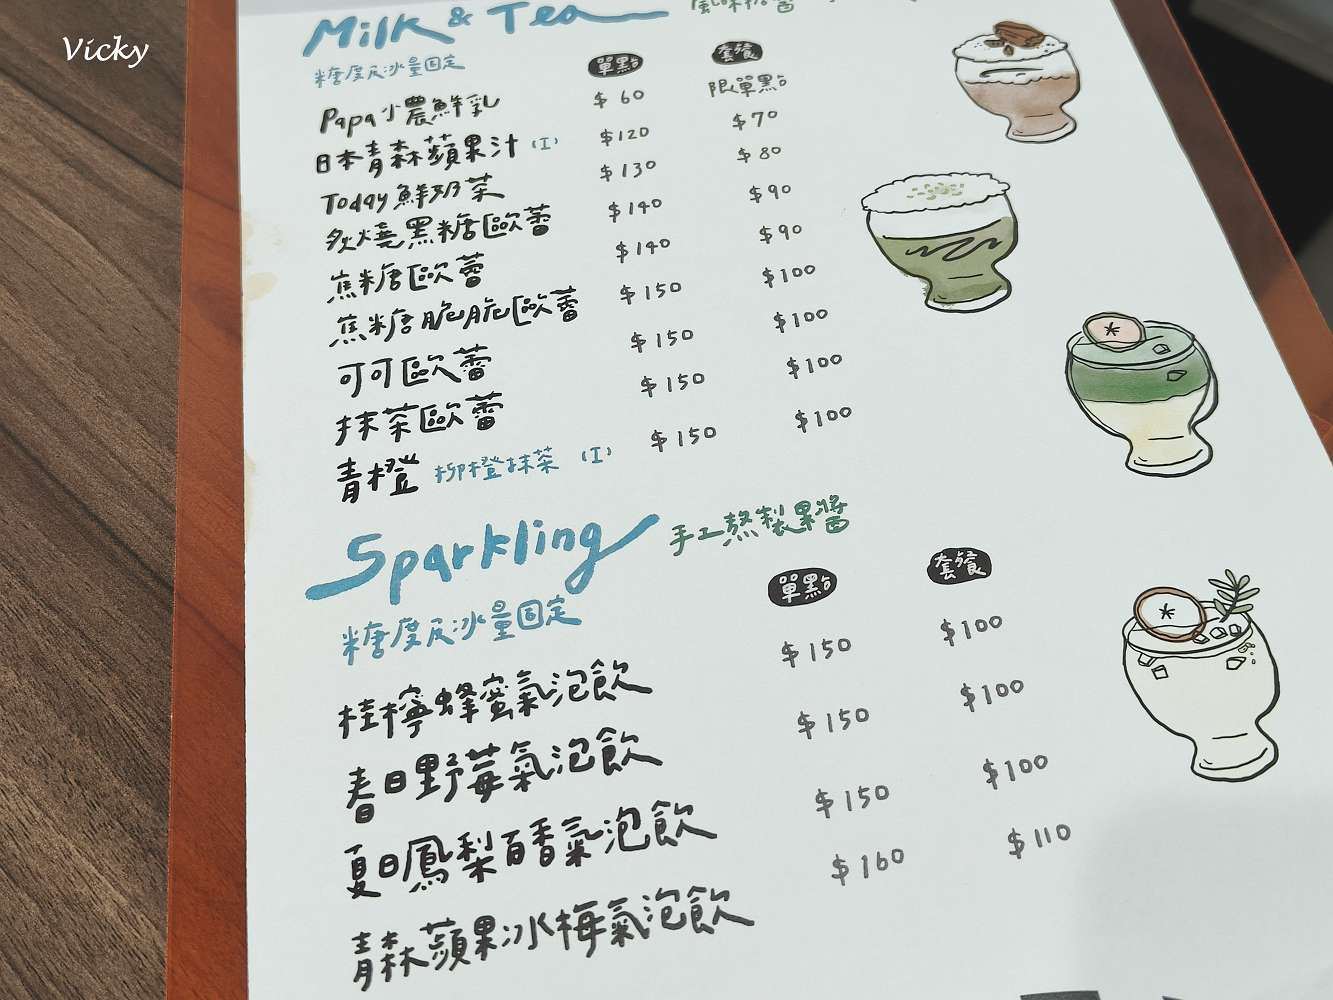 Vicky
Milk & Tea
糖度及冰量固定 單點 套餐
Papa小農鮮乳 $60 限單點
日本青森蘋果汁 (I) $120 $70
Today鮮奶茶 $130 $80
炙燒黑糖歐蕾 $140 $90
焦糖歐蕾 $140 $90
焦糖脆脆歐蕾 $150 $100
可可歐蕾 $150 $100
抹茶歐蕾 $150 $100
青橙 柳橙抹茶 (I) $150 $100
Sparkling 手工熬製果醬
糖度及冰量固定 單點 套餐
桂檸蜂蜜氣泡飲 $150 $100
春日野莓氣泡飲 $150 $100
夏日鳳梨百香氣泡飲 $150 $100
青森蘋果冰梅氣泡飲 $160 $110